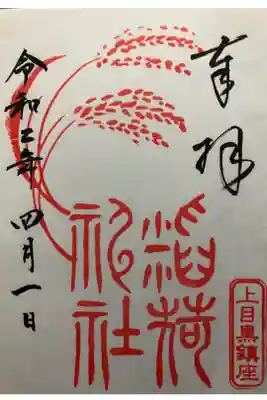 奉拝
上目黒鎮座
稲荷
神社
令和二年 四月一日